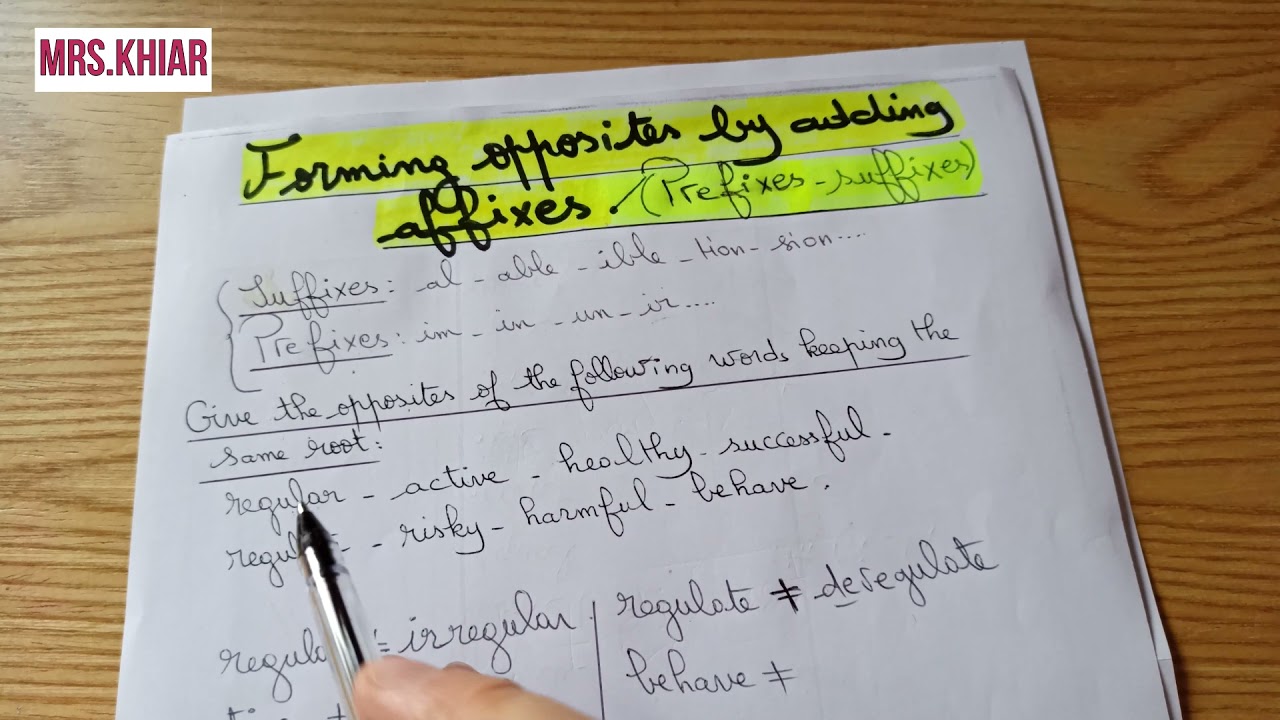 MRS.KHIAR
Forming opposites by adding
affixes. (Prefixes - suffixes)
Suffixes: al - able - ible - tion - sion....
Prefixes: im - in - un - ir....
Give the opposites of the following words keeping the
same root:
regular - active - healthy - successful -
- risky - harmful - behave.
irregular
regulate ≠ deregulate
behave ≠